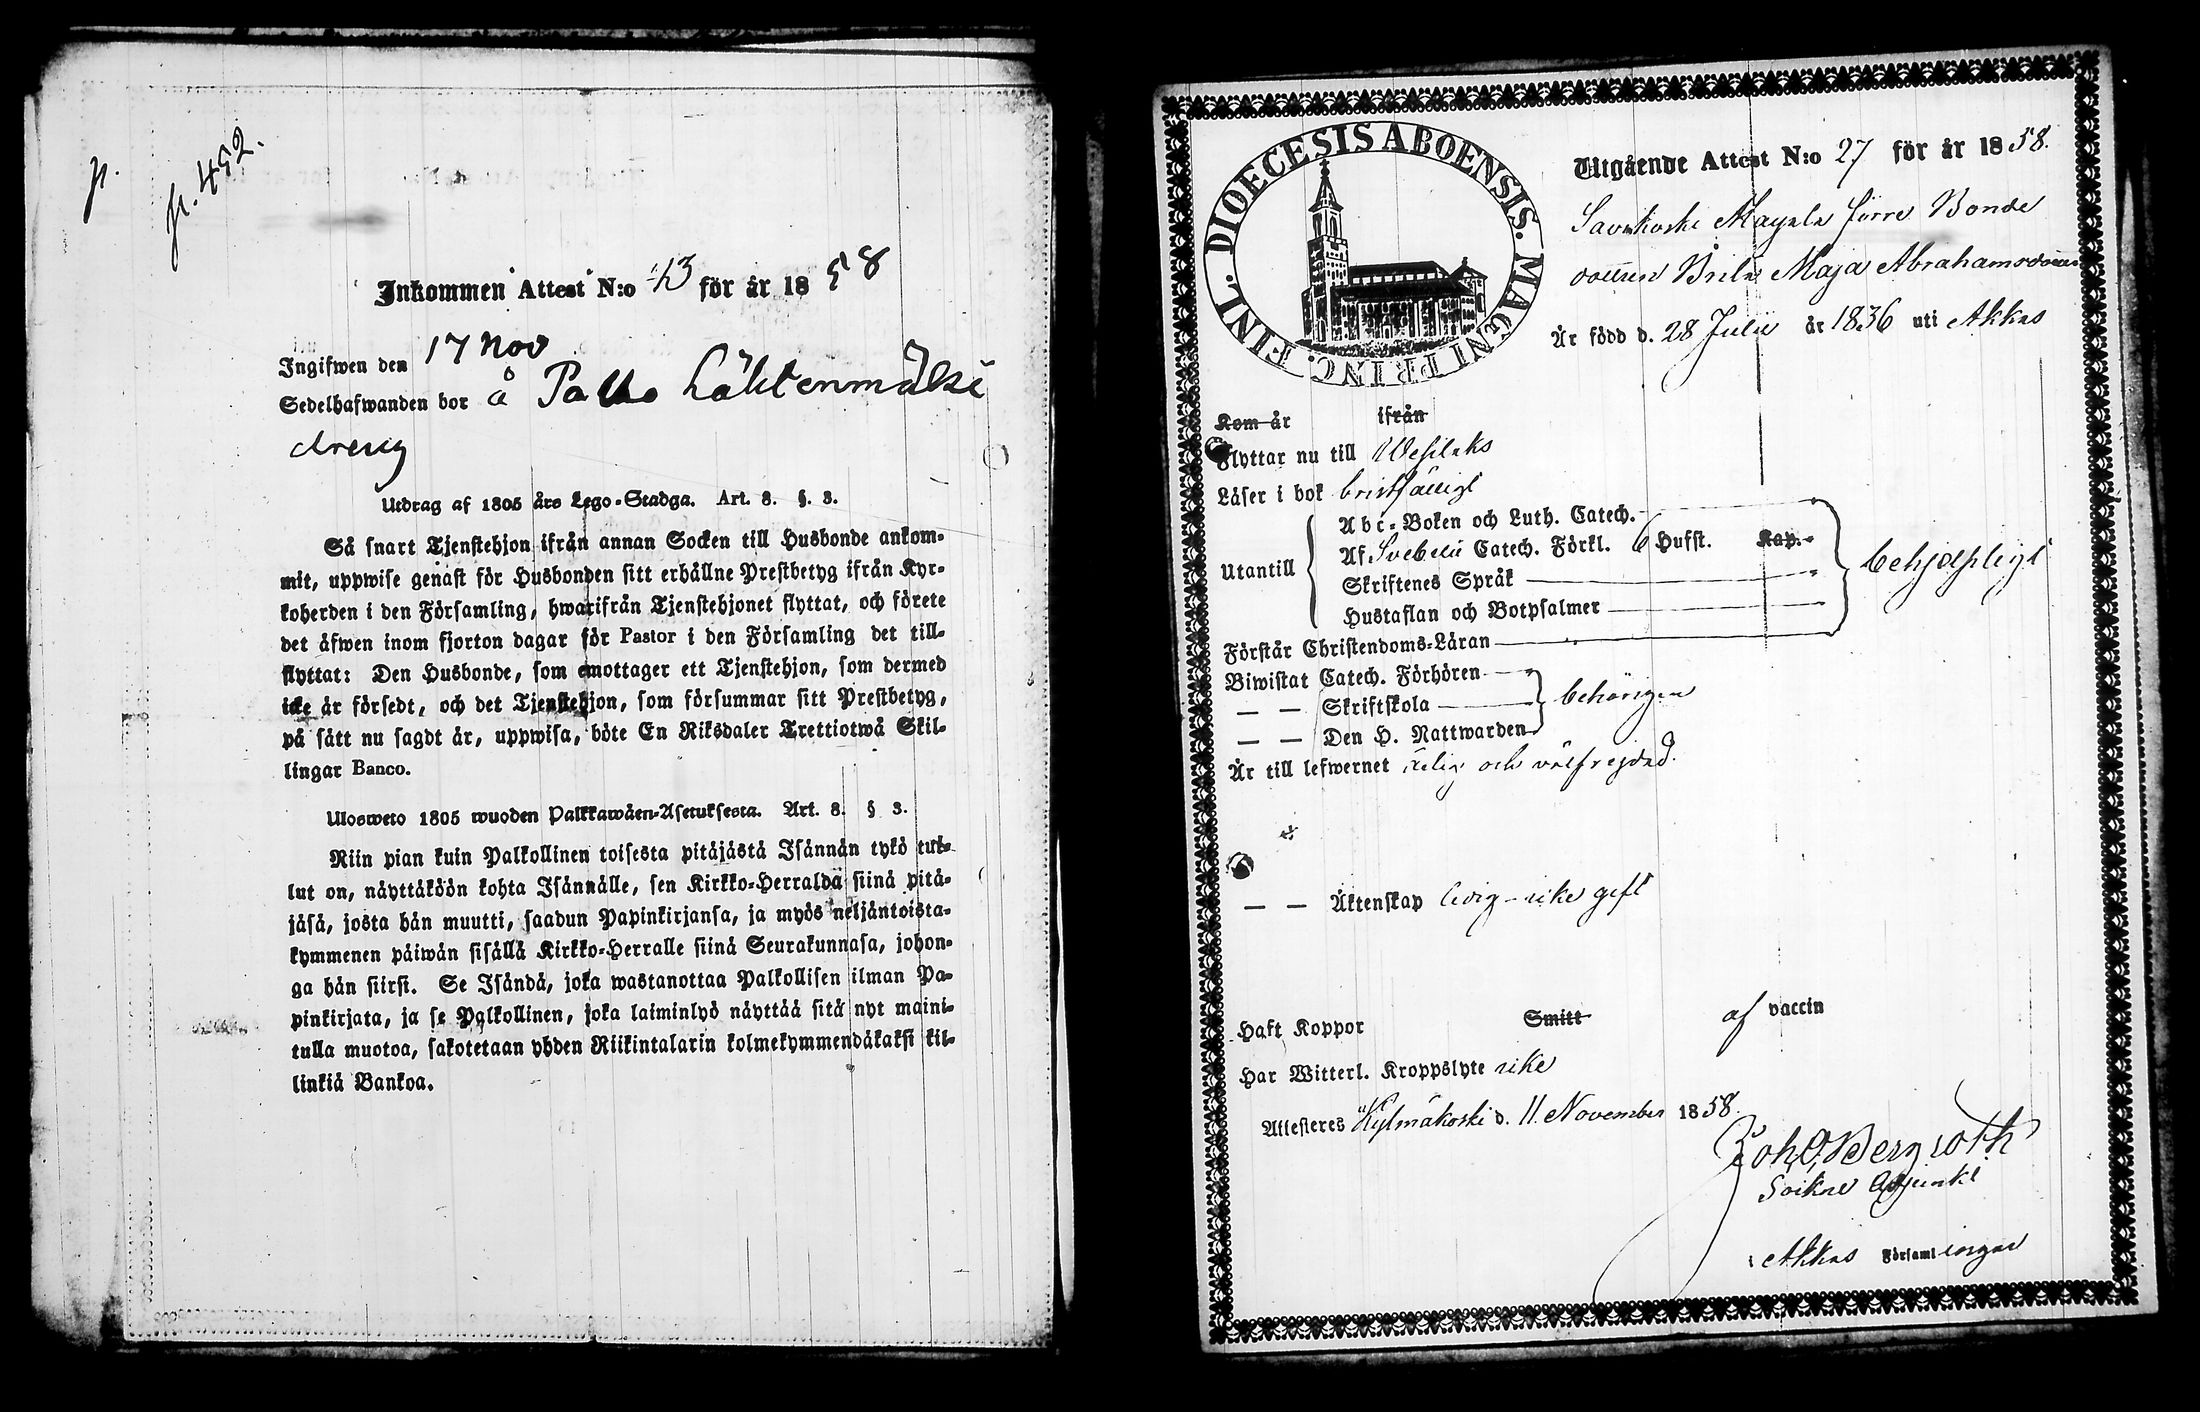 p.
p. 452.
Inkommen Attest N:o 43 för år 1858
Ingifwen den 17 Nov
Sedelhafwanden bor å Palho Lähtenmäki
dreng
Utdrag af 1805 års Lego-Stadga. Art. 8. §. 3.
Så snart Tjenstehjon ifrån annan Socken till Husbonde ankom-
mit, uppwise genast för Husbonden sitt erhållne Prestbetyg ifrån Kyr-
koherden i den Församling, hwarifrån Tjenstehjonet flyttat, och förete
det äfwen inom fjorton dagar för Pastor i den Församling det till-
flyttat: Den Husbonde, som emottager ett Tjenstehjon, som dermed
icke är försedt, och det Tjenstehjon, som försummar sitt Prestbetyg,
på sätt nu sagdt är, uppwisa, böte En Riksdaler Trettiotwå Skil-
lingar Banco.
Ulosweto 1805 wuoden Palkkawäen-Asetuksesta. Art. 8. § 3.
Niin pian kuin Palkollinen toisesta pitäjästä Isännän tykö tul-
lut on, näyttäköön kohta Isännälle, sen Kirkko-Herralda siinä pitä-
jäsä, josta hän muutti, saadun Papinkirjansa, ja myös neljäntoista-
kymmenen päiwän sisällä Kirkko-Herralle siinä Seurakunnasa, johon-
ga hän siirsi. Se Isändä, joka wastanottaa Palkollisen ilman Pa-
pinkirjata, ja se Palkollinen, joka laiminlyö näyttää sitä nyt maini-
tulla muotoa, sakotetaan yhden Riikintalarin kolmekymmendäkaksi kil-
linkiä Bankoa.
DIOECESIS ABOENSIS. MAGNI PRINC. FINL.
Utgående Attest N:o 27 för år 1858.
Savikoski Mayala förre Bonde
dottren Brita Maja Abrahamsdotter
Är född d. 28 Julii år 1836 uti Akkas
Kom år ifrån
Flyttar nu till Wesilaks
Läser i bok bristfälligt
Utantill
Abc-Boken och Luth. Catech.
Af Svebelii Catech. Förkl. 6 Hufst. Kap.
Skriftenes Språk
Hustaflan och Botpsalmer
behjelpligt
Förstår Christendoms-Läran
Biwistat Catech. Förhören
— — Skriftskola behörigen
— — Den H. Nattwarden
Är till lefwernet ärlig och välfrejdad.
— — Äktenskap ledig - icke gift
Haft Koppor Smitt af vaccin
Har Witterl. Kroppslyte icke
Attesteres Kylmäkoski d. 11 November 1858.
Joh. O. Bergroth
Sockne Adjunkt
i Akkas Församlingar